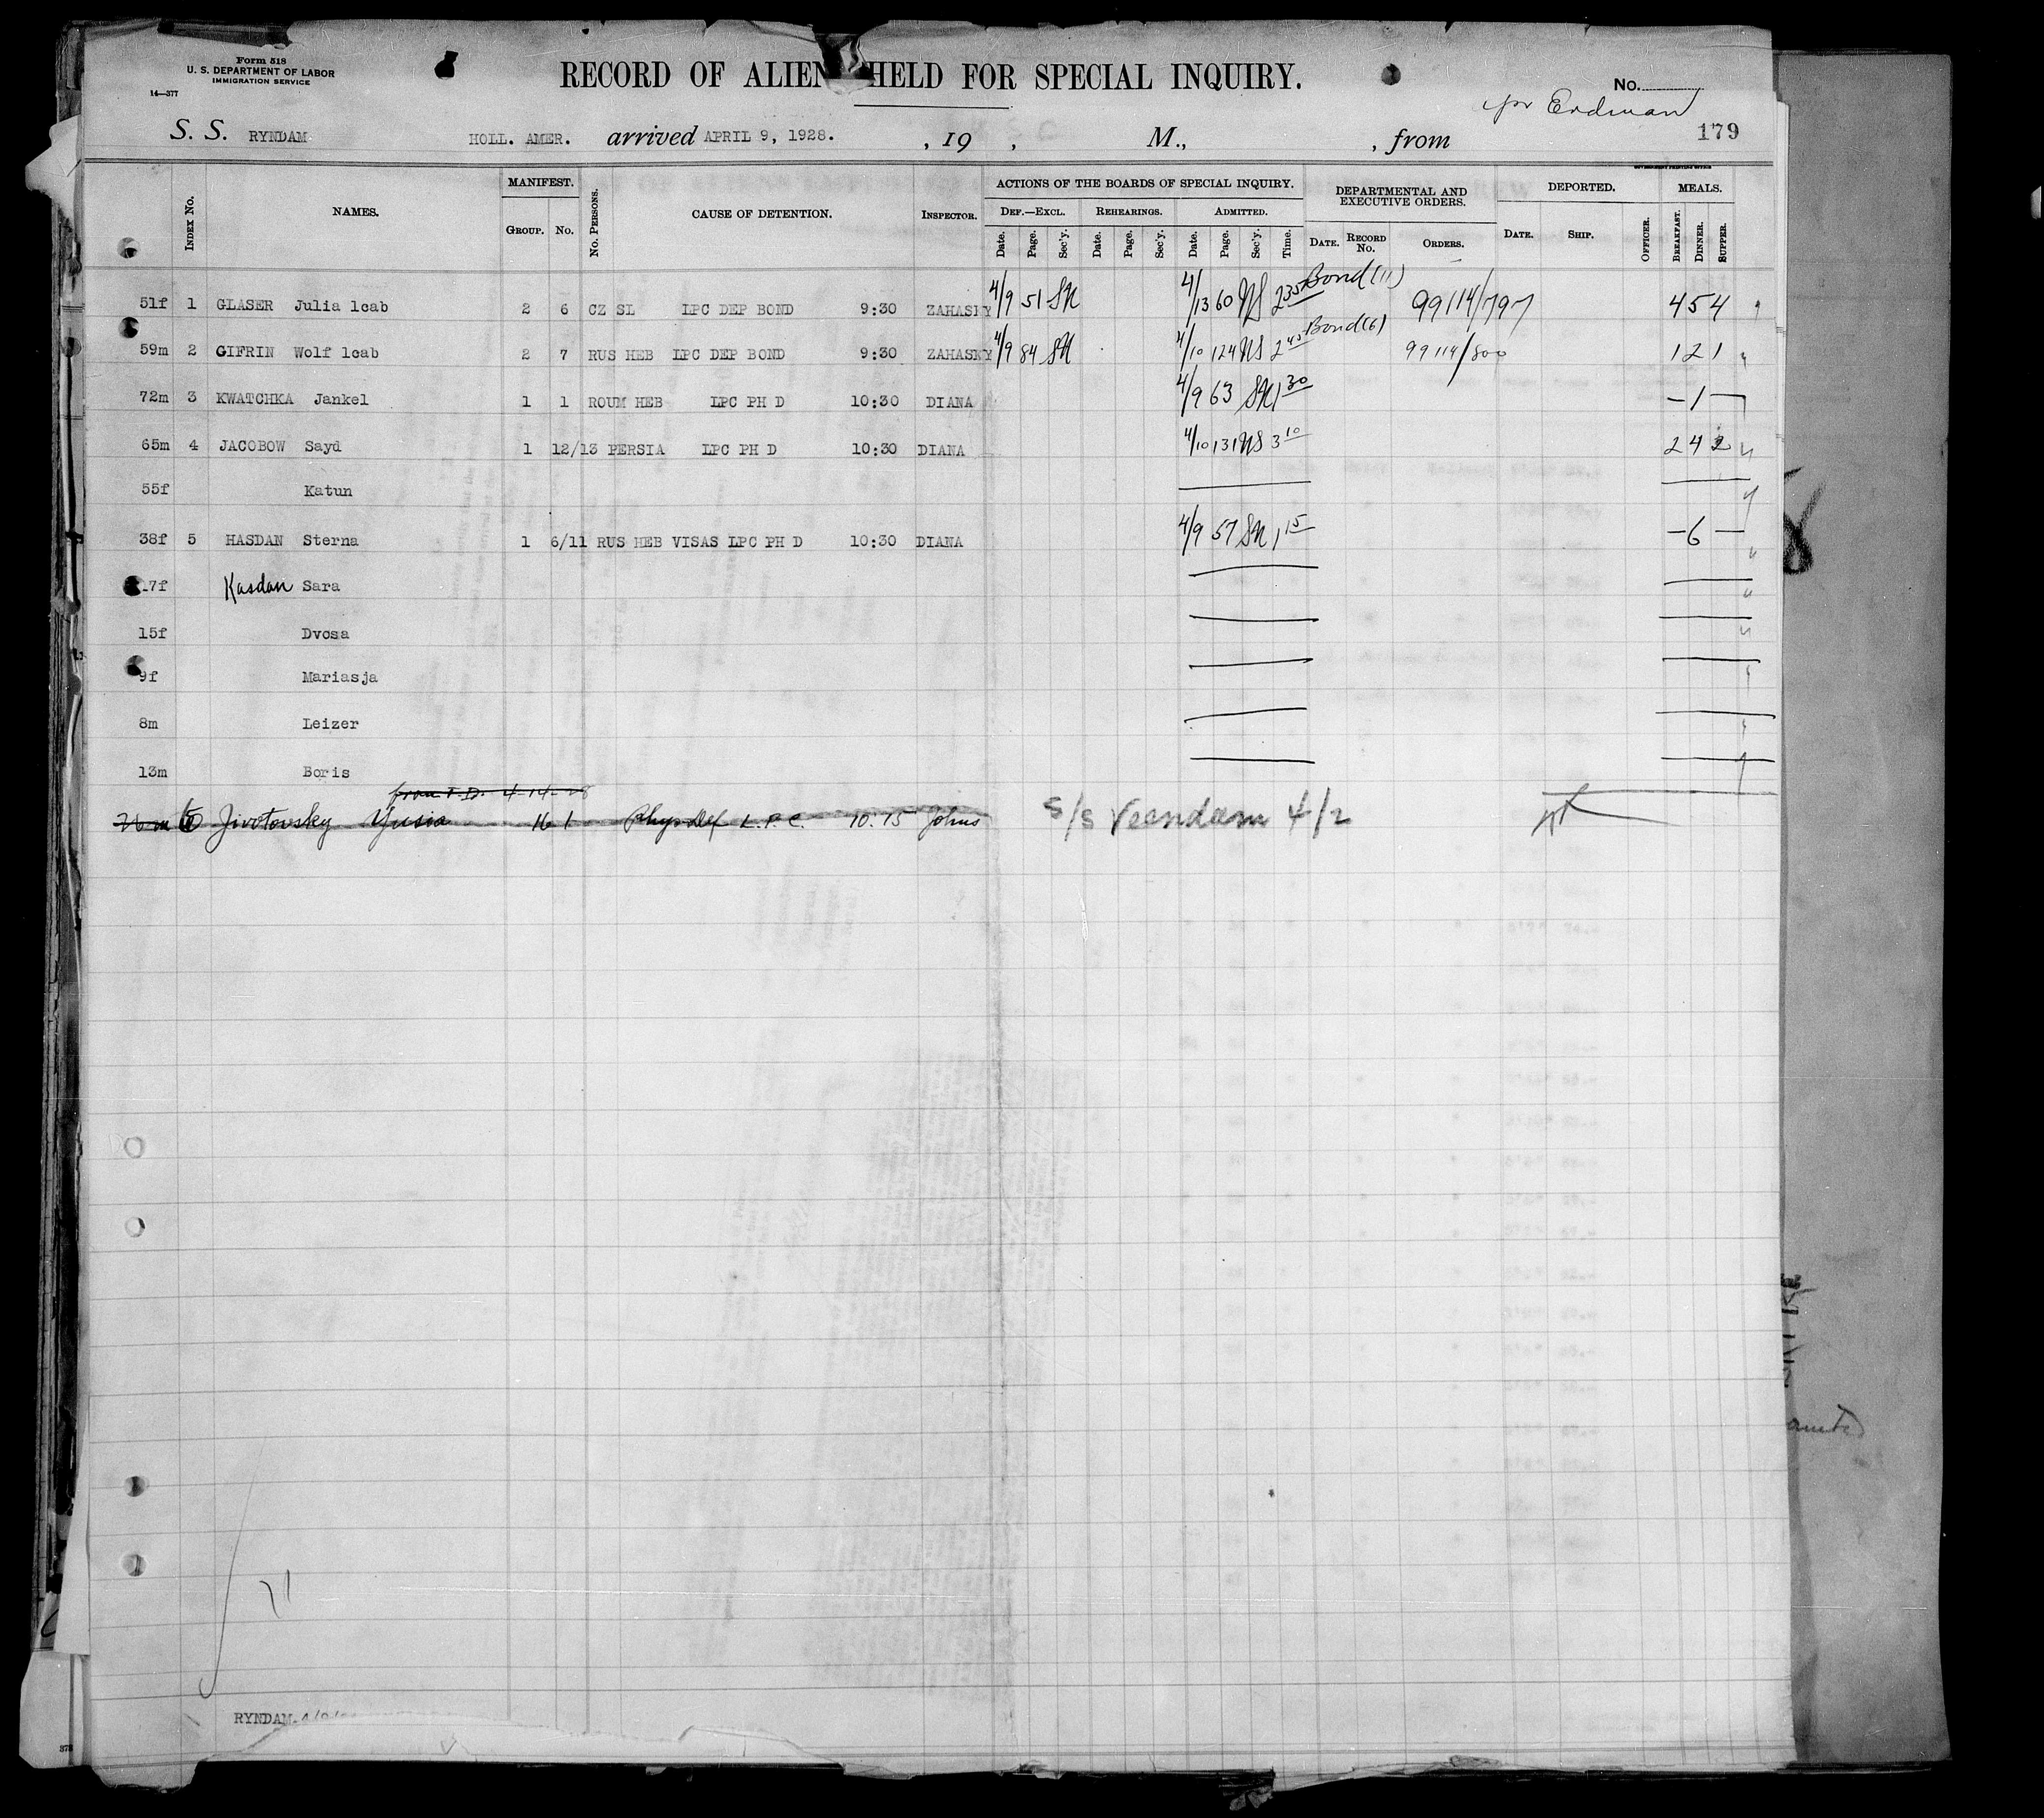 Form 518
U. S. DEPARTMENT OF LABOR
IMMIGRATION SERVICE
14—377
RECORD OF ALIEN HELD FOR SPECIAL INQUIRY.
No.
Erdman
179
S. S. RYNDAM HOLL. AMER. arrived APRIL 9, 1928. , 19 , M., , from
GOVERNMENT PRINTING OFFICE
INDEX No. NAMES. MANIFEST. GROUP. No. No. PERSONS. CAUSE OF DETENTION. INSPECTOR. ACTIONS OF THE BOARDS OF SPECIAL INQUIRY. DEF.—EXCL. Date. Page. Sec'y. REHEARINGS. Date. Page. Sec'y. ADMITTED. Date. Page. Sec'y. Time. DEPARTMENTAL AND EXECUTIVE ORDERS. DATE. RECORD No. ORDERS. DEPORTED. DATE. SHIP. OFFICER. MEALS. BREAKFAST. DINNER. SUPPER.
51f 1 GLASER Julia lcab 2 6 CZ SL LPC DEP BOND 9:30 ZAHASKY 4/9 51 SN 4/13 60 NS 2 35 Bond (11) 99114/797 4 5 4
59m 2 GIFRIN Wolf lcab 2 7 RUS HEB LPC DEP BOND 9:30 ZAHASKY 4/9 84 SN 4/10 124 NS 2 45 Bond (6) 99114/800 1 2 1
72m 3 KWATCHKA Jankel 1 1 ROUM HEB LPC PH D 10:30 DIANA 4/9 63 SN 1 30 — 1 —
65m 4 JACOBOW Sayd 1 12/13 PERSIA LPC PH D 10:30 DIANA 4/10 131 NS 3 10 2 4 2
55f Katun
38f 5 HASDAN Sterna 1 6/11 RUS HEB VISAS LPC PH D 10:30 DIANA 4/9 57 SN 1 15 — 6 —
17f Kasdan Sara
15f Dvosa
9f Mariasja
8m Leizer
13m Boris
from T.D. 4-14-28
26m 6 Jivotovsky Yusia 16 1 Phys Def L.P.C. 10:15 Johns S/S Veendam 4/2
71
RYNDAM 4/9/
378